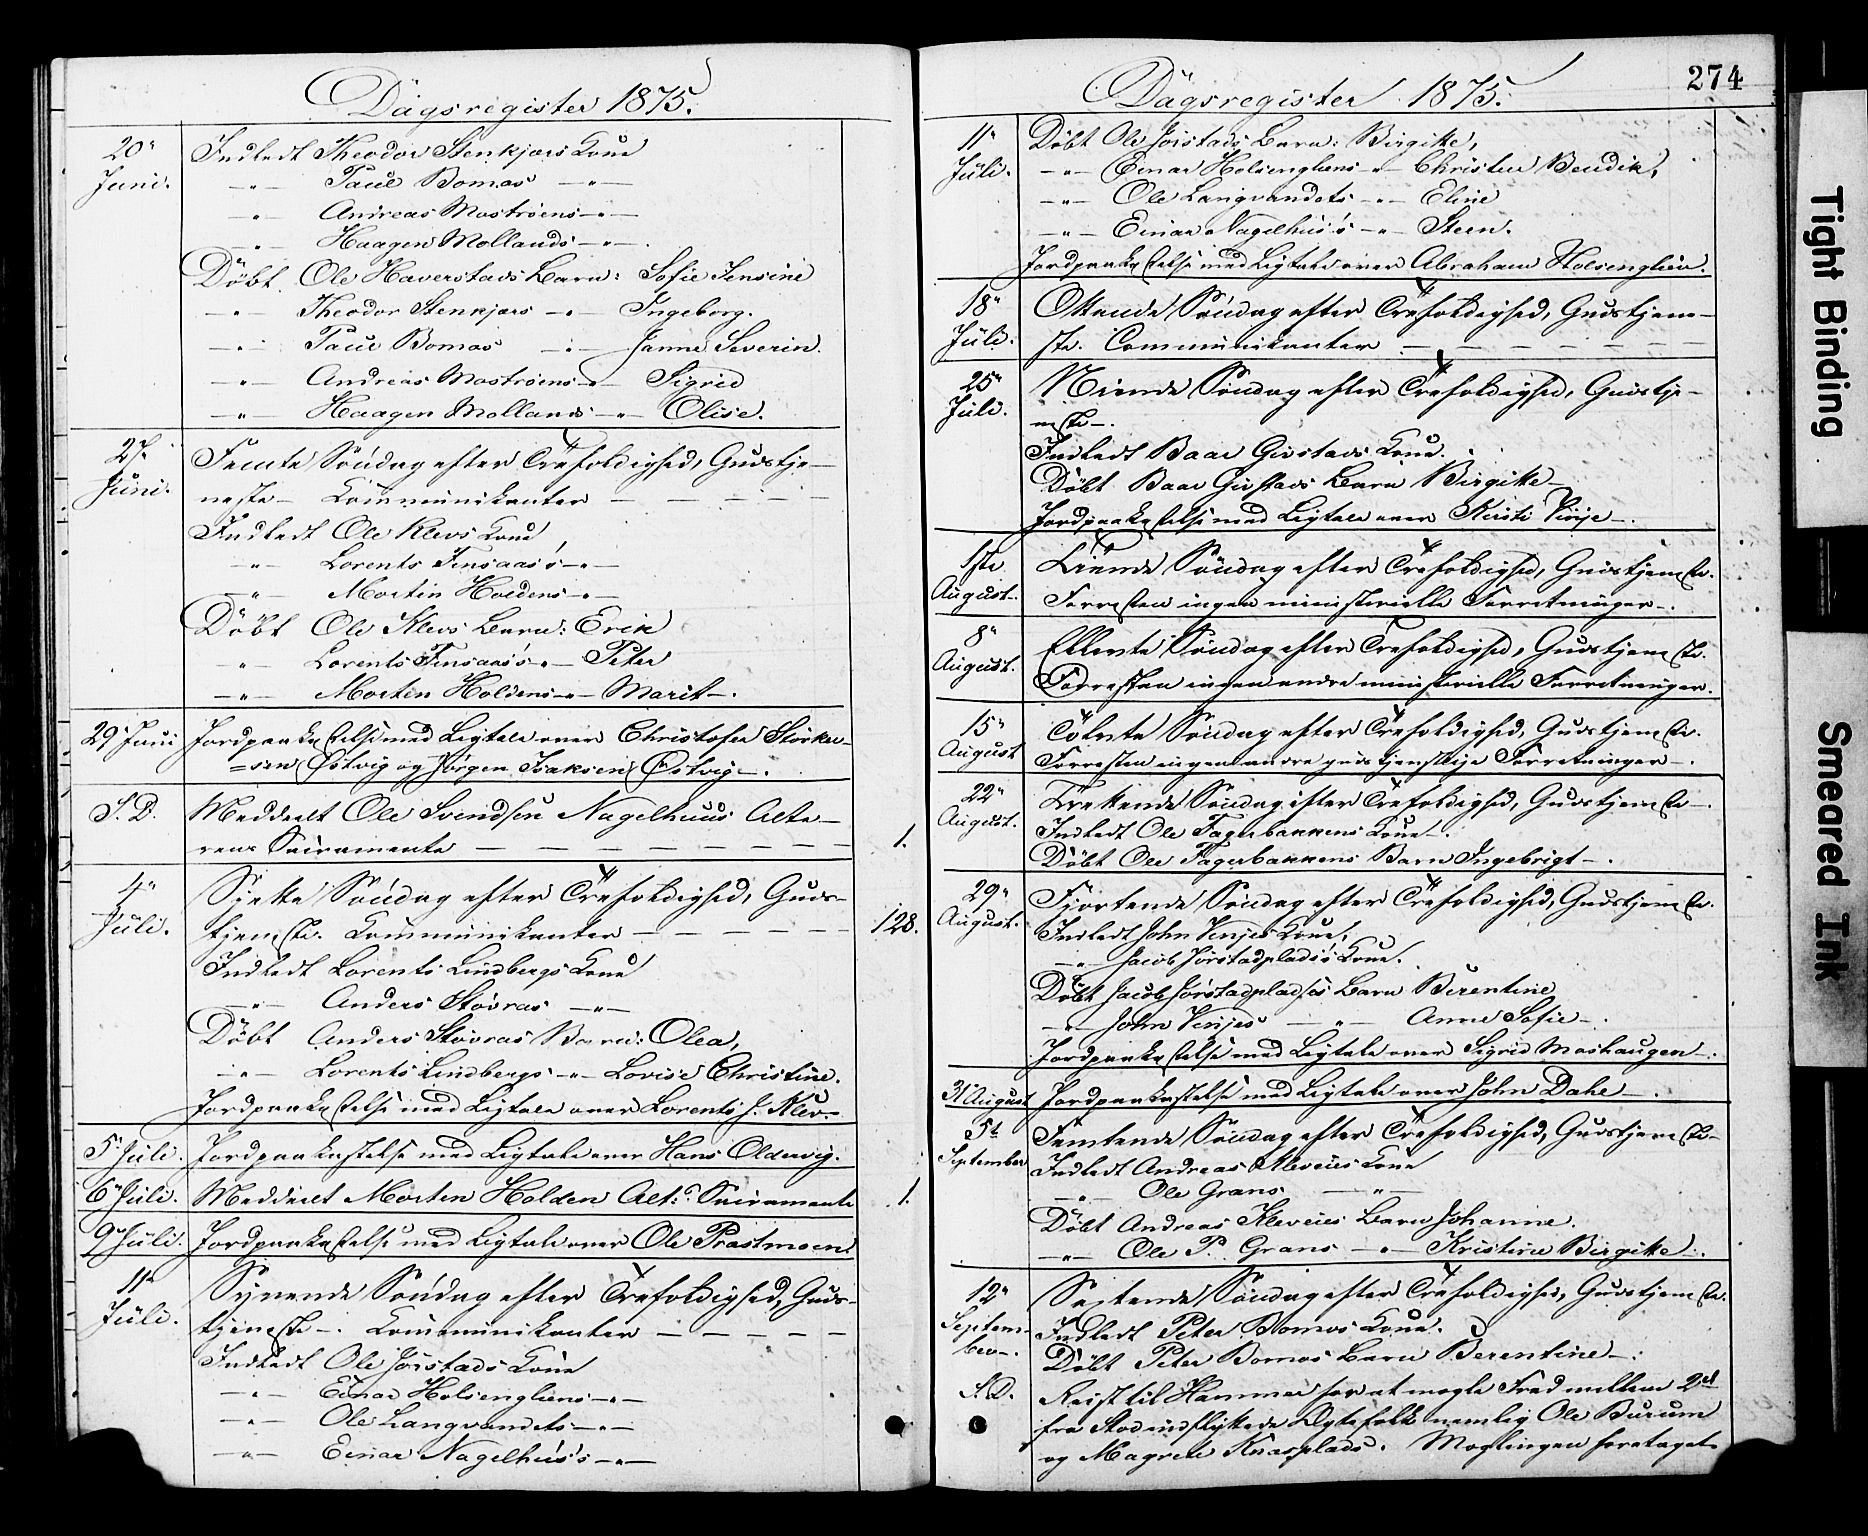 Dagsregister 1875.
20" Juni.
Indledt Theodor Stenkjærs Kone
—"— Paul Bomos —"—
—"— Andreas Mostrøens —"—
—"— Haagen Mollands —"—.
Döbt Ole Haverstads Barn: Sofie Jensine
—"— Theodor Stenkjærs —"— Ingeborg.
—"— Paul Bomos —"— Janne Severin.
—"— Andreas Mostrøens —"— Sigrid
—"— Haagen Mollands —"— Olise.
27" Juni.
Femte Söndag efter Trefoldighed, Gudstje-
neste — Kommunikanter — — — — —
Indledt Ole Klevs Kone,
—"— Lorents Finsaas's —"—
—"— Mortin Holdens —"—
Döbt Ole Klevs Barn: Erik
—"— Lorents Finsaas's —"— Peter
—"— Morten Holdens —"— Marit —.
29 Juni
Jordpaakastelse med Ligtale over Christofer Storker-
=sen Östvig og Jørgen Isaksen Östvig —.
S. D.
Meddeelt Ole Svendsen Nagelhuus Alte-
rens Sacramente — — — — — — — 1.
4" Juli.
Sjette Söndag efter Trefoldighed, Guds-
tjeneste. Kommunikanter — — — — — 128.
Indledt Lorents Lindbergs Kone
—"— Anders Stövras —"—
Döbt Anders Stövras Barn: Olea,
—"— Lorents Lindbergs —"— Lovise Christine.
Jordpaakastelse med Ligtale over Lorents J. Klev —
5" Juli.
Jordpaakastelse med Ligtale over Hans Oldervig.
6" Juli.
Meddeelt Morten Holden Alt: Sacramente 1.
9" Juli.
Jordpaakastelse med Ligtale over Ole Præstmoen.
11" Juli.
Syvende Söndag efter Trefoldighed, Guds-
tjeneste —. Kommunikanter — — — — —
Indledt Ole Jörstads Kone
—"— Einar Holsengliens —"—
—"— Ole Langvandets —"—
—"— Einar Nagelhus's —"—
274
Dagsregister 1875.
11" Juli.
Döbt Ole Jörstads Barn: Birgitte,
—"— Einar Holsengliens —"— Christen Bendik,
—"— Ole Langvandets —"— Eline
—"— Einar Nagelhus's —"— Steen.
Jordpaakastelse med Ligtale over Abraham Holsenglien.
18" Juli.
Ottende Söndag efter Trefoldighed, Gudstjene-
ste. Communikanter — — — — — — —
25" Juli.
Niende Söndag efter Trefoldighed, Gudstje-
neste —.
Indledt Baar Gifstads Kone.
Döbt Baar Gifstads Barn Birgitte —
Jordpaakastelse med Ligtale over Kirsti Vinje —.
1ste August.
Tiende Söndag efter Trefoldighed, Gudstjeneste.
Forresten ingen ministerielle Forretninger —.
8" August.
Ellevte Söndag efter Trefoldighed, Gudstjeneste.
Forresten ingen andre ministerielle Forretninger.
15" August
Tolvte Söndag efter Trefoldighed, Gudstjeneste.
Forresten ingen andre gudstjenstlige Forretninger —.
22" August.
Trettende Söndag efter Trefoldighed, Gudstjeneste —.
Indledt Ole Fagerbakkens Kone —.
Döbt Ole Fagerbakkens Barn Ingebrigt —.
29" August.
Fjortende Söndag efter Trefoldighed, Gudstjeneste.
Indledt John Vinjes Kone,
—"— Jacob Jörstadpladss's Kone.
Döbt Jacob Jörstadpladses Barn Berentine
—"— John Vinjes —"— Anne Sofie —.
Jordpaakastelse med Ligtale over Sigrid Moshaugen —.
31" August
Jordpaakastelse med Ligtale over John Dahl —.
5t September
Femtende Söndag efter Trefoldighed, Gudstjeneste —
Indledt Andreas Kleveies Kone
—"— Ole Grans —"—
Döbt Andreas Kleveies Barn Johanne.
—"— Ole P. Grans —"— Kristine Birgitte —.
12" Septem-
ber —.
Sextende Söndag efter Trefoldighed, Gudstjeneste.
Indledt Peter Bomos Kone.
Döbt Peter Bomos Barn Berentine —:
S. D.
Reist til Hammer for at mægle Fred mellem 2de
fra Stod indflyttede Ægtefolk nemlig Ole Burum
og Magrete Knarplads. Mæglingen foretaget
Tight Binding
Smeared Ink